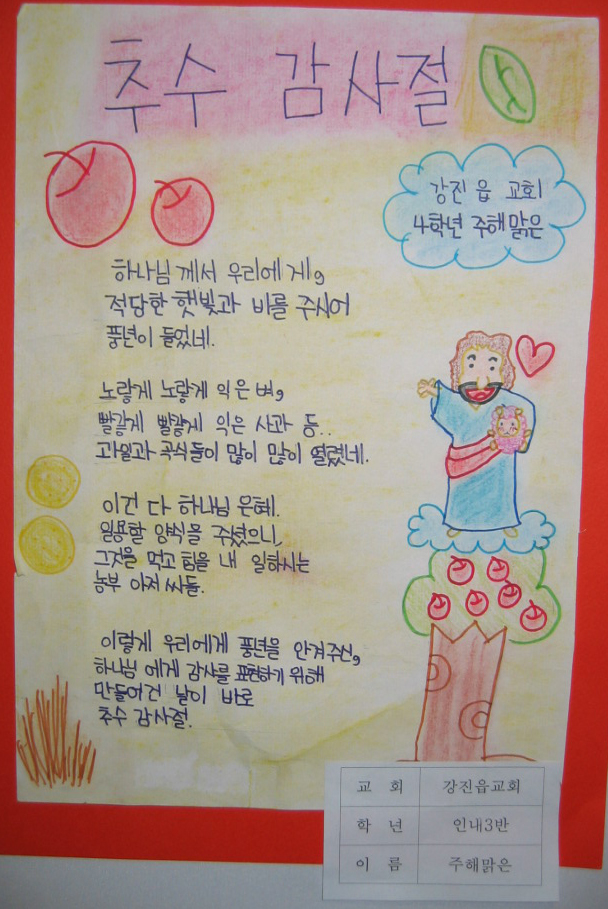 추수 감사절
강진 읍 교회
4학년 주해맑은
하나님 께서 우리에게,
적당한 햇빛과 비를 주시어
풍년이 들었네.
노랗게 노랗게 익은 벼,
빨갛게 빨갛게 익은 사과 등..
과일과 곡식들이 많이 많이 열렸네.
이건 다 하나님 은혜.
일용할 양식을 주셨으니,
그것을 먹고 힘을 내 일하시는
농부 아저 씨들.
이렇게 우리에게 풍년을 안겨주신,
하나님 에게 감사를 표현하기 위해
만들어건 날이 바로
추수 감사절.
교 회 강진읍교회
학 년 인내3반
이 름 주해맑은